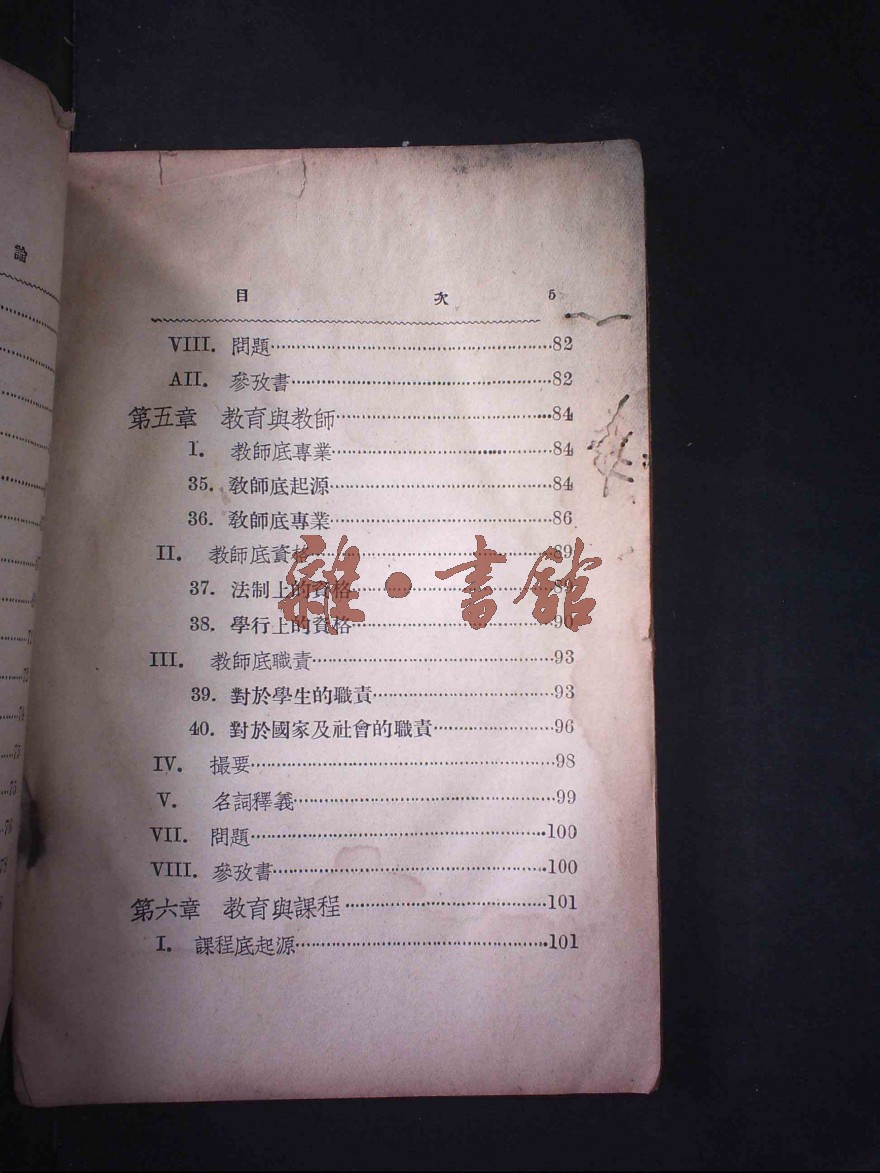 論
目 次 5
VIII. 問題……82
AII. 參攷書……82
第五章 教育與教師……84
I. 教師底專業……84
35. 教師底起源……84
36. 教師底專業……86
II. 教師底資格……89
37. 法制上的資格……89
38. 學行上的資格……90
III. 教師底職責……93
39. 對於學生的職責……93
40. 對於國家及社會的職責……96
IV. 撮要……98
V. 名詞釋義……99
VII. 問題……100
VIII. 參攷書……100
第六章 教育與課程……101
I. 課程底起源……101
雜·書館